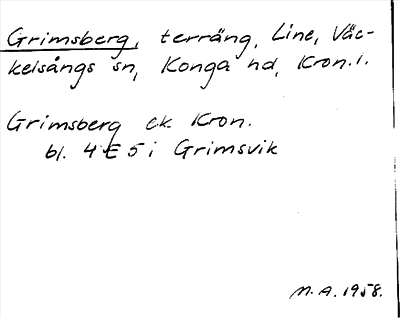 Grimsberg, terräng, Line, Väc-
kelsångs sn, Konga hd, Kron.l.
Grimsberg ek. Kron.
bl. 4 E 5 i Grimsvik
M.A. 1958.